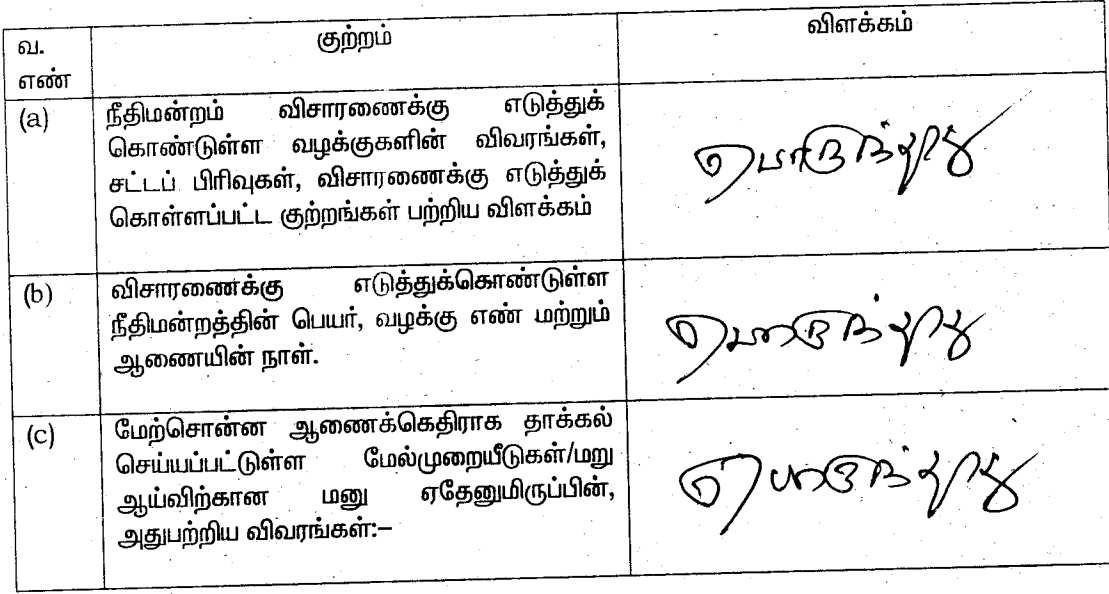 வ.
எண்
குற்றம்
விளக்கம்
(a)
நீதிமன்றம் விசாரணைக்கு எடுத்துக்
கொண்டுள்ள வழக்குகளின் விவரங்கள்,
சட்டப் பிரிவுகள், விசாரணைக்கு எடுத்துக்
கொள்ளப்பட்ட குற்றங்கள் பற்றிய விளக்கம்
பொருந்தாது
(b)
விசாரணைக்கு எடுத்துக்கொண்டுள்ள
நீதிமன்றத்தின் பெயர், வழக்கு எண் மற்றும்
ஆணையின் நாள்.
பொருந்தாது
(c)
மேற்சொன்ன ஆணைக்கெதிராக தாக்கல்
செய்யப்பட்டுள்ள மேல்முறையீடுகள்/மறு
ஆய்விற்கான மனு ஏதேனுமிருப்பின்,
அதுபற்றிய விவரங்கள்:–
பொருந்தாது